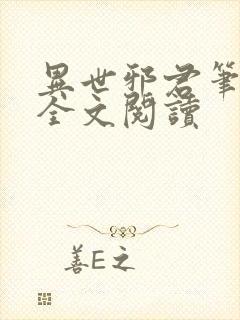 異世邪君筆
全文閱讀
善E之